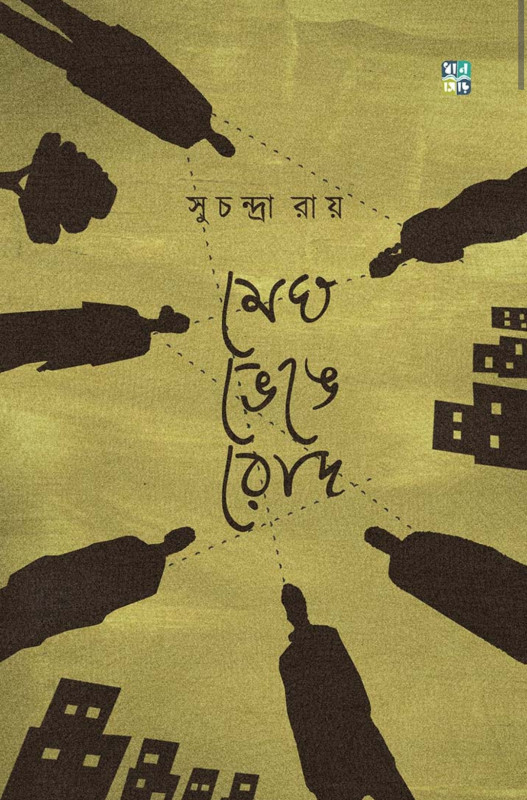 সুচন্দ্রা রায়
মেঘ
ভেঙে
রোদ